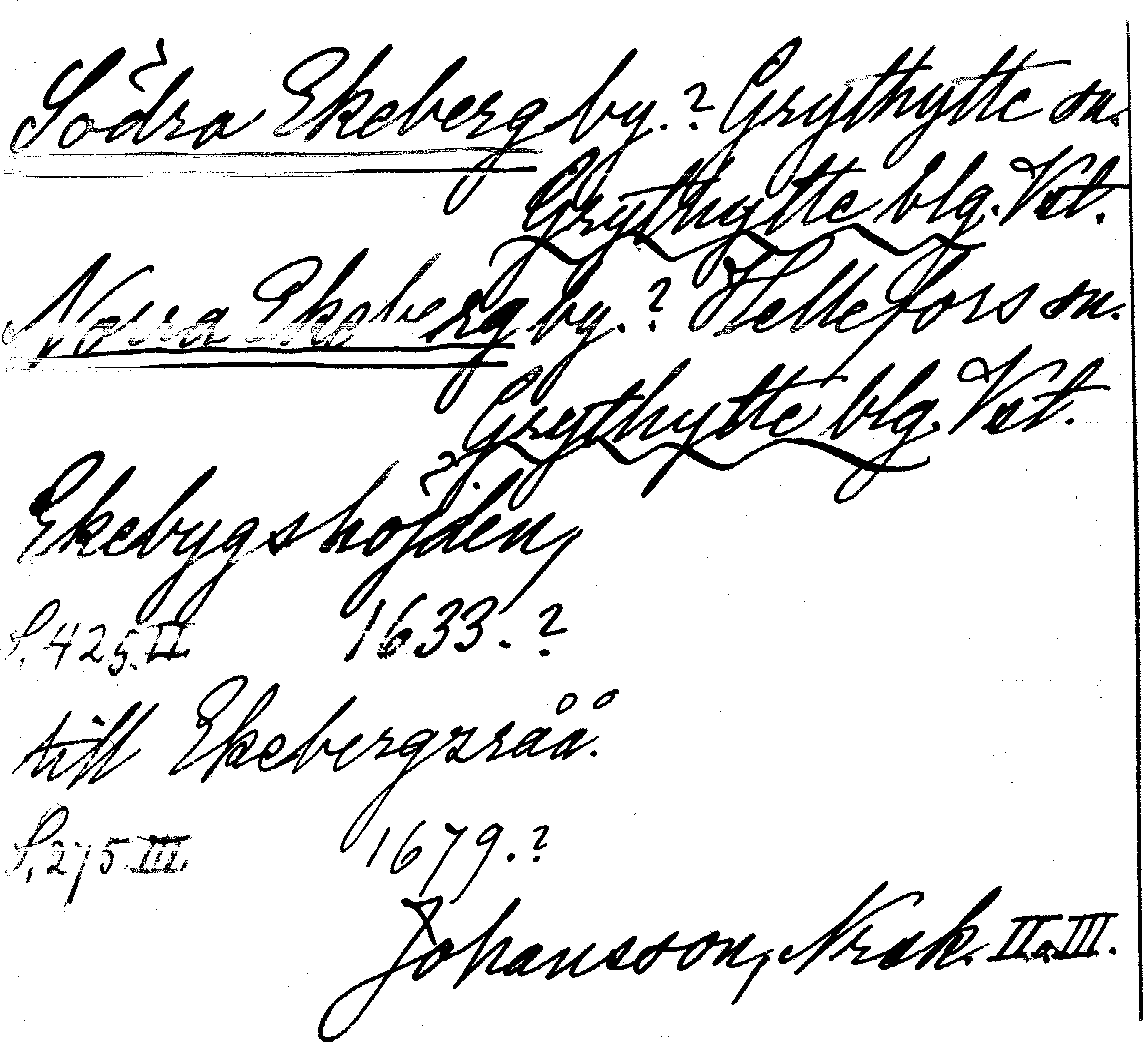 Södra Ekeberg by.? Grythytte sn.
Grythytte blg. Vstl.
Norra Ekeberg by.? Hellefors sn.
Grythytte blg. Vstl.
Ekebygshöjden,
S. 425. II. 1633.?
till Ekebergsråå.
S. 275 III. 1679.?
Johansson, Nrak. II o. III.